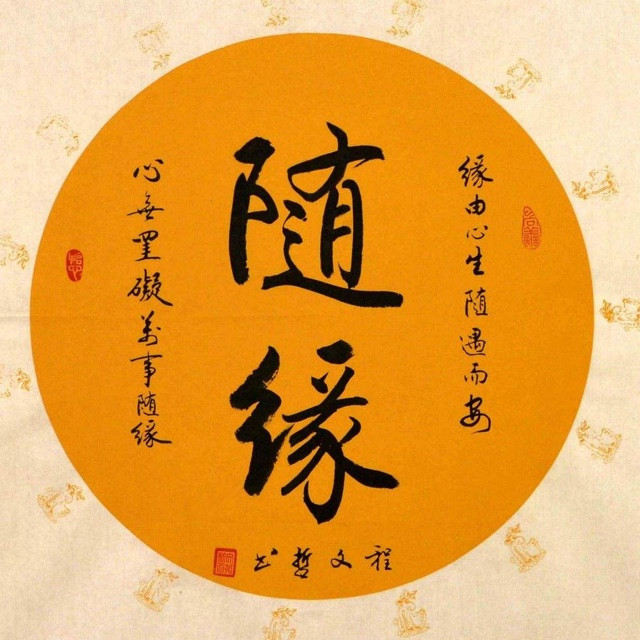 随缘
缘由心生随遇而安
心無罣礙萬事随缘
程文哲书